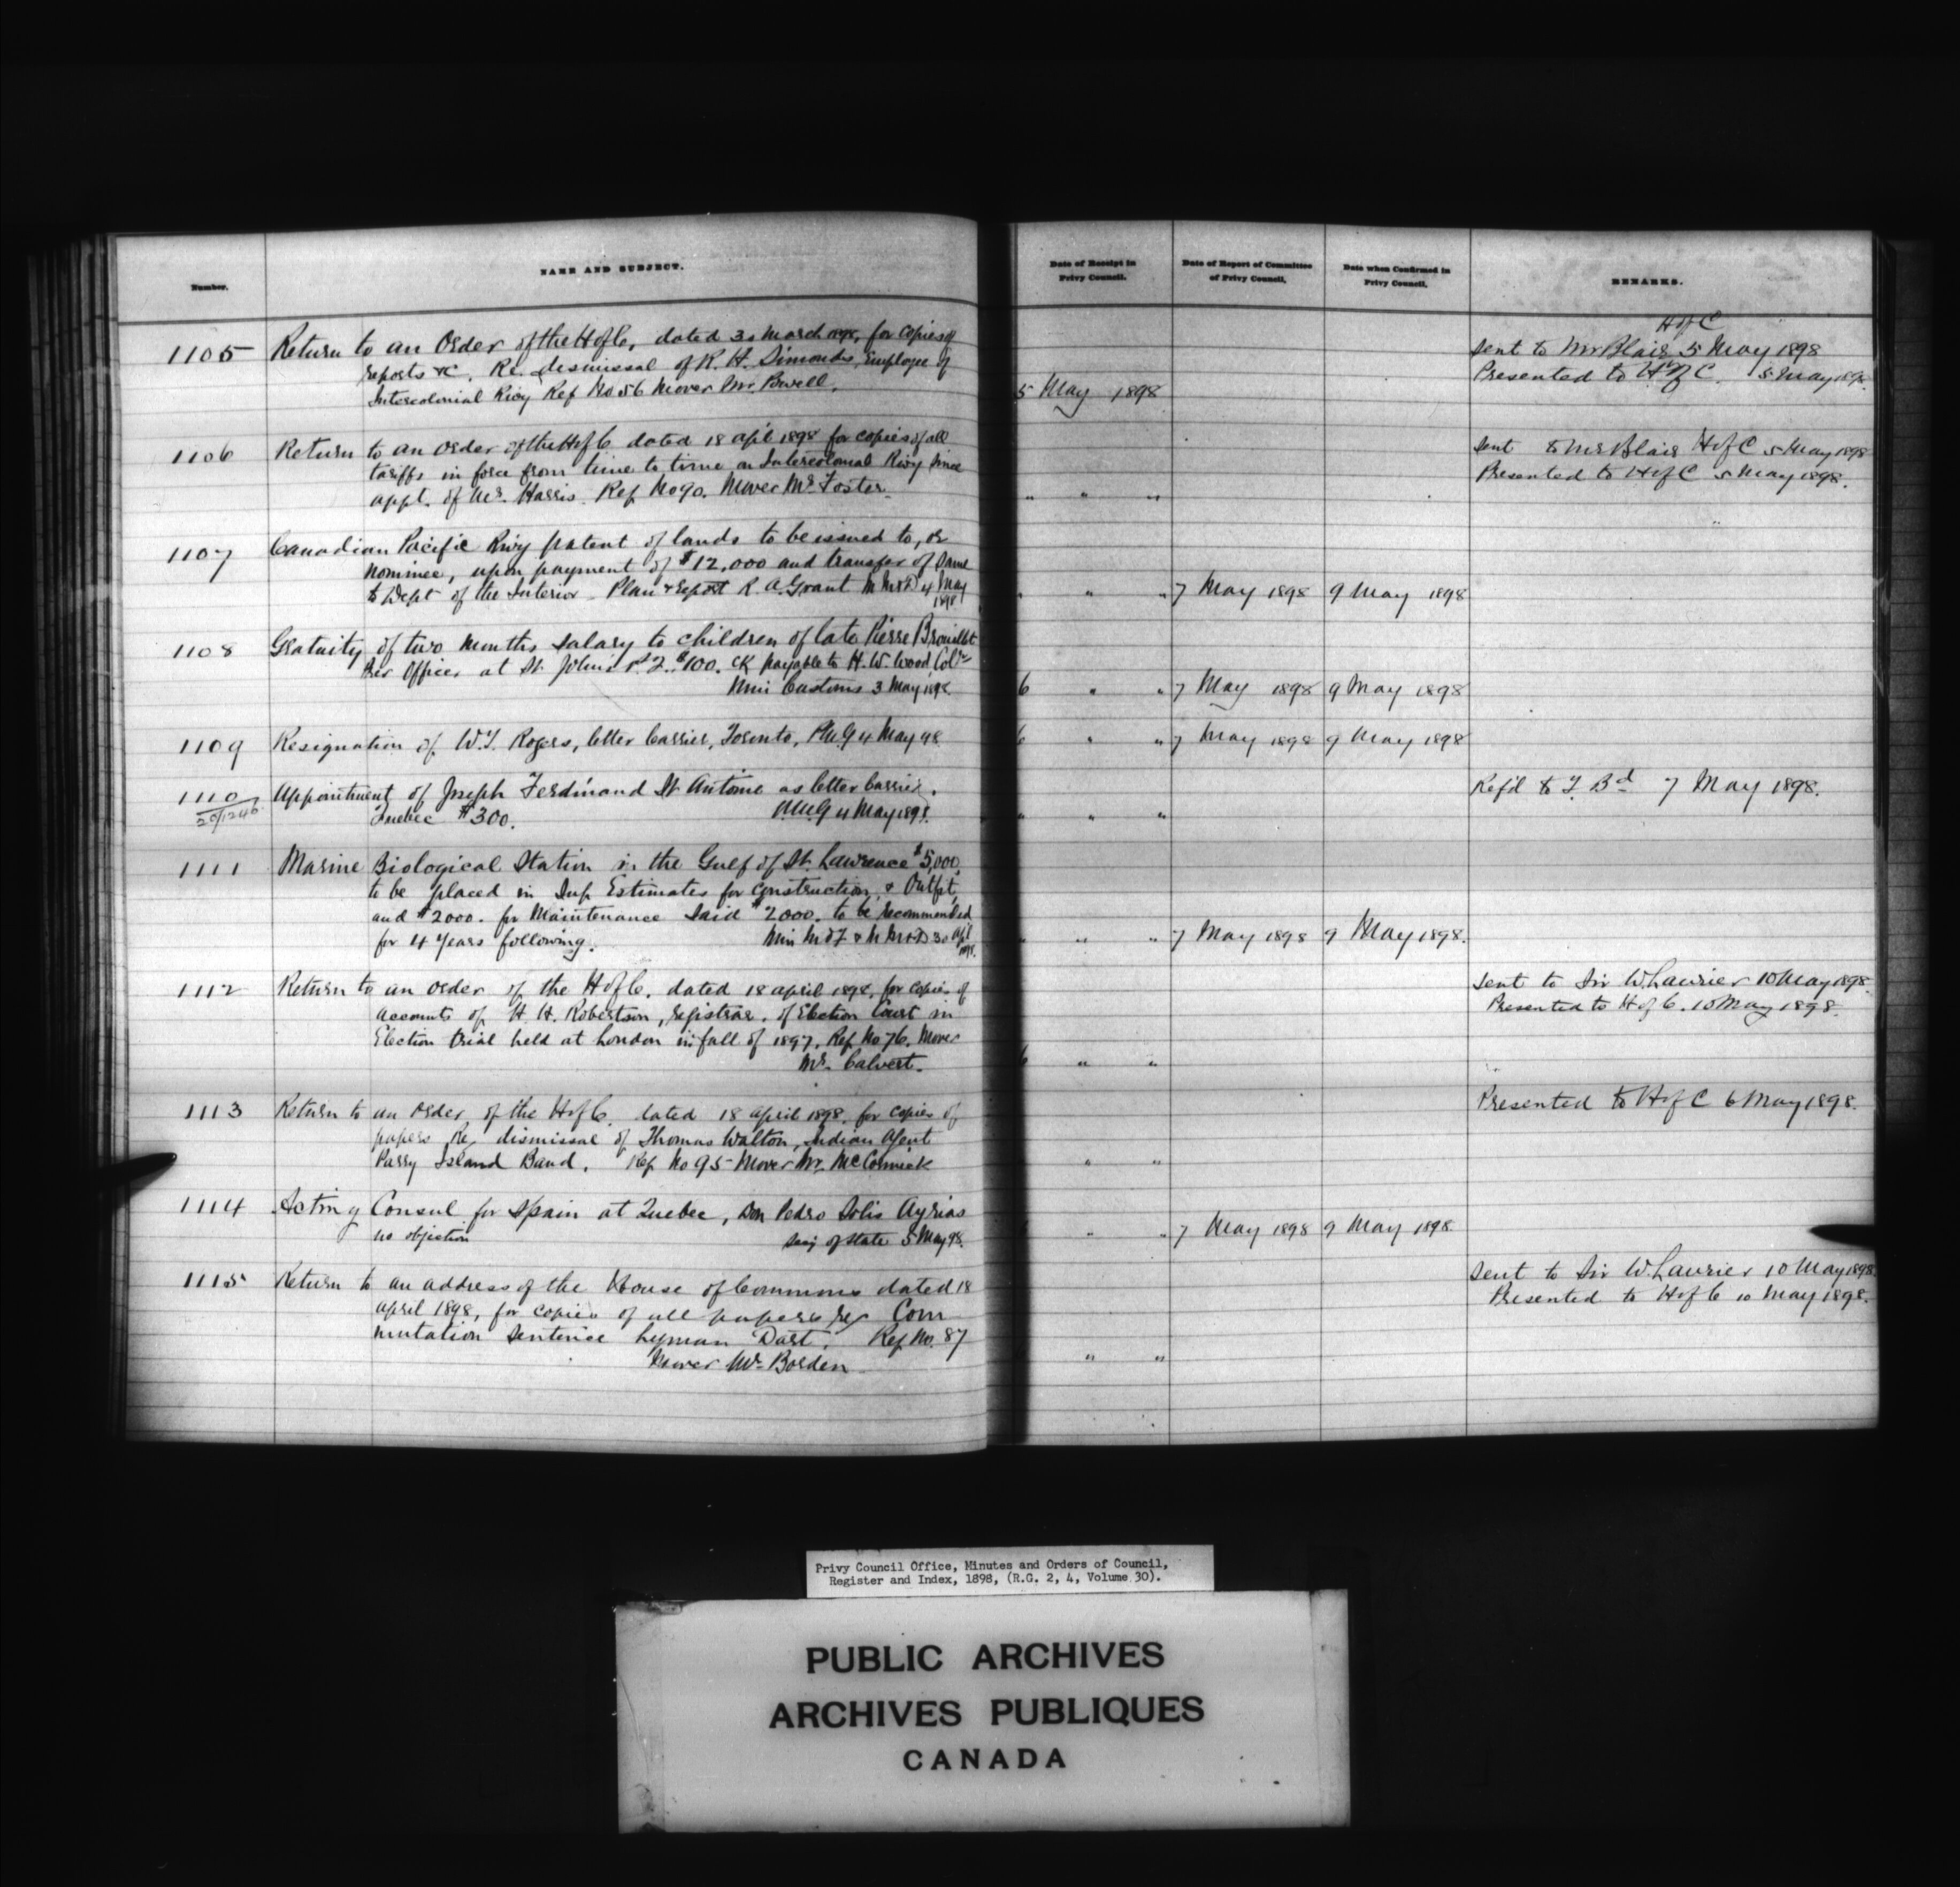 Number.
NAME AND SUBJECT.
Date of Receipt in
Privy Council.
Date of Report of Committee
of Privy Council,
Date when Confirmed in
Privy Council,
REMARKS.
1105 Return to an Order of the H of C, dated 30 March 1898, for copies of
reports &c. Re. dismissal of R. H. Simonds, Employee of
Intercolonial Rwy Ref No 56 Mover Mr. Powell.
5 May 1898
H of C
Sent to Mr Blair 5 May 1898
Presented to H of C. 5 May 1898.
1106 Return to an Order of the H of C dated 18 apl 1898 for copies of all
tariffs in force from time to time on Intercolonial Rwy since
appt. of Mr. Harris. Ref No 90. Mover Mr. Foster.
" " "
Sent to Mr Blair H of C 5 May 1898
Presented to H of C 5 May 1898.
1107 Canadian Pacific Rwy patent of lands to be issued to, or
nominee, upon payment of $12,000 and transfer of same
to Dept of the Interior - Plan & report R. A. Grant M M & D 4 May
1898
" " " 7 May 1898 9 May 1898
1108 Gratuity of two months salary to children of late Pierre Brouillet
Officer at St. John's P.Q. $100. CK payable to H. W. Wood, Colr
Min Customs 3 May 1898.
6 " " 7 May 1898 9 May 1898
1109 Resignation of W. T. Rogers, letter Carrier, Toronto, P.M.G 4 May 98
6 " " 7 May 1898 9 May 1898
1110 Appointment of Joseph Ferdinand St Antoine as letter Carrier.
20/1246
Quebec $300. P.M.G 4 May 1898.
" " "
Ref'd to T. Bd 7 May 1898.
1111 Marine Biological Station in the Gulf of St. Lawrence $5,000
to be placed in Sup Estimates for construction & Outfit,
and $2000. for Maintenance Said $2000. to be recommended
for 4 years following. Min M & F & M M & D 30 Apl
1898.
" " " 7 May 1898 9 May 1898.
1112 Return to an order of the H of C. dated 18 april 1898, for copies of
accounts of H. H. Robertson, registrar, of Election Court in
Election trial held at London in fall of 1897. Ref No 76. Mover
Mr. Calvert.
6 " "
Sent to Sir W. Laurier 10 May 1898.
Presented to H of C. 10 May 1898.
1113 Return to an Order of the H of C. dated 18 april 1898, for copies of
papers Re dismissal of Thomas Walton, Indian Agent
Parry Island Band. Ref No 95 Mover Mr. McCormick
" "
Presented to H of C 6 May 1898.
1114 Acting Consul for Spain at Quebec, Don Pedro Solis Ayrias
no objection Secy of State 5 May 98.
" " 7 May 1898 9 May 1898
1115 Return to an address of the House of Commons dated 18
april 1898, for copies of all papers re Com
mutation Sentence Lyman Dart. Ref No. 87
Mover Mr Borden
" "
Sent to Sir W. Laurier 10 May 1898.
Presented to H of C 10 May 1898.
Privy Council Office, Minutes and Orders of Council,
Register and Index, 1898, (R.G. 2, 4, Volume 30).
PUBLIC ARCHIVES
ARCHIVES PUBLIQUES
CANADA